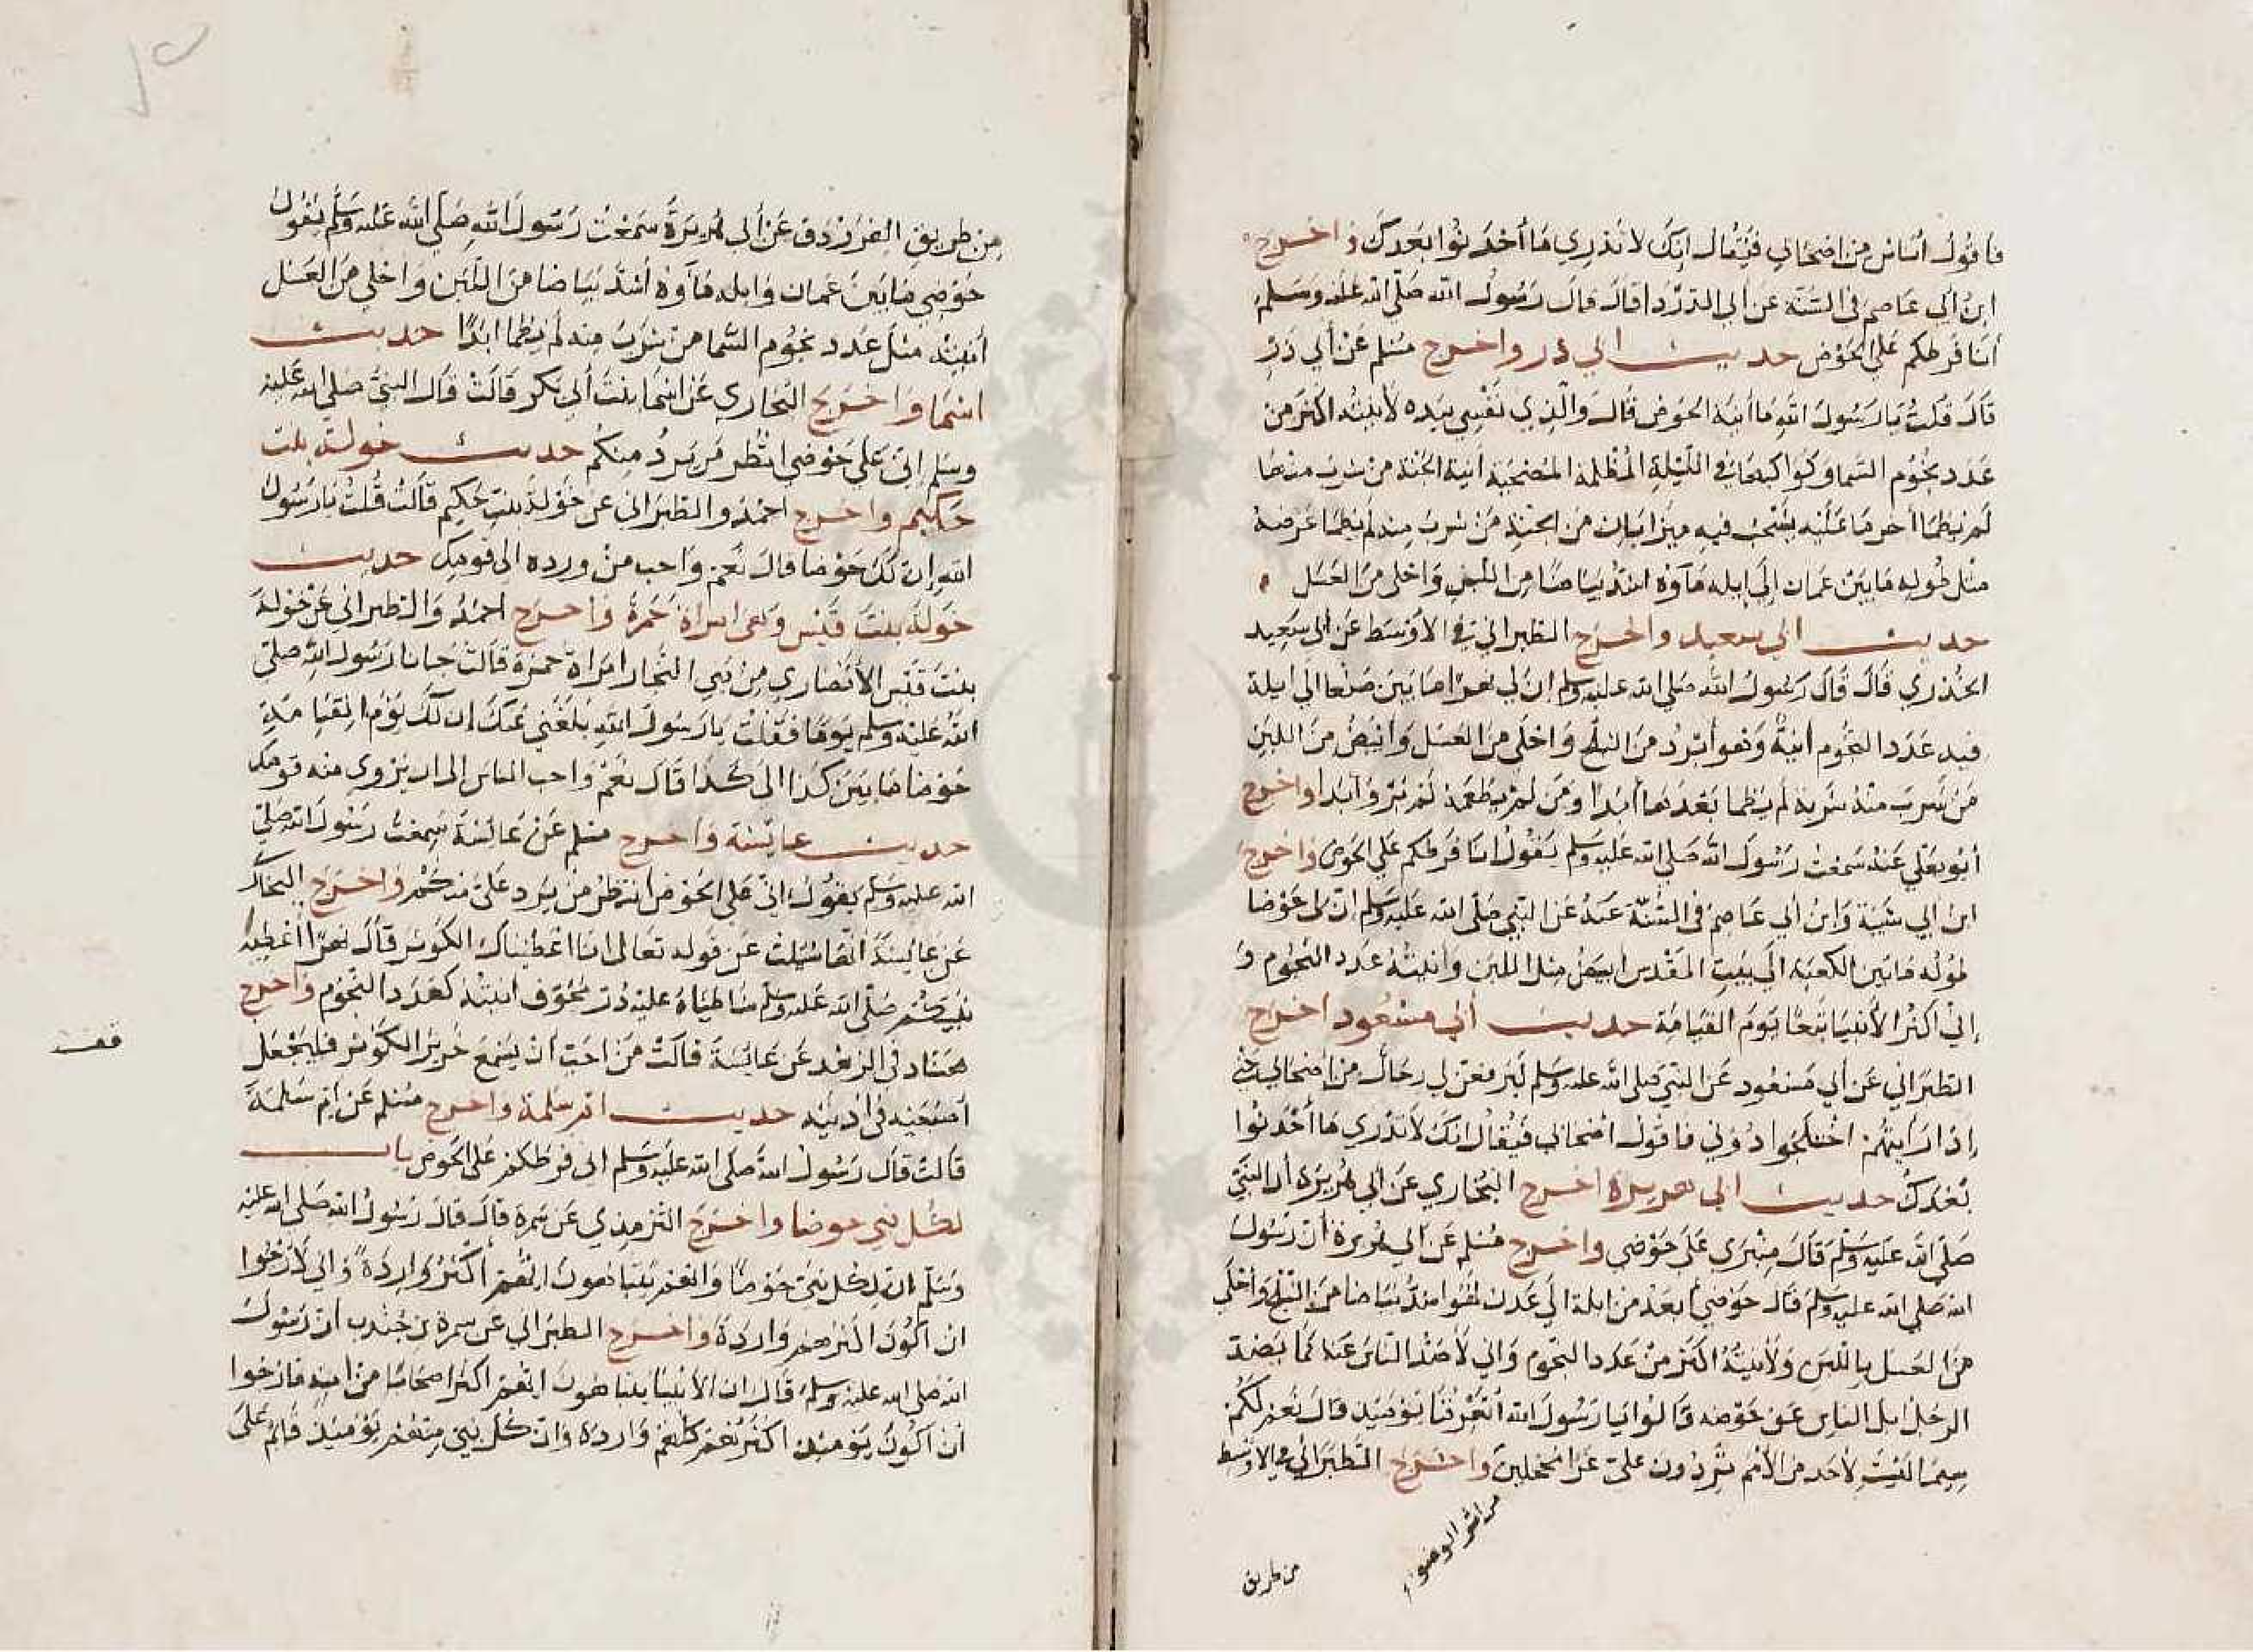 فاقول اناس من اصحابي فيقال انك لا تدري ما أحدثوا بعدك واخرج
ابن أبي عاصم في السنة عن ابي الدرداء قال قال رسول الله صلى الله عليه وسلم
أنا فرطكم على الحوض حديث ابي ذر واخرج مسلم عن أبي ذر
قال قلت يا رسول الله ما آنية الحوض قال والذي نفسي بيده لأنيته اكثر من
عدد نجوم السما وكواكبها في الليلة المظلمة المصحية آنية الجنة من شرب منها
لم يظما آخر ما عليه يشخب فيه ميزابان من الجنة من شرب منه لم يظما عرضه
مثل طوله ما بين عمان إلى إيله ماؤه اشد بياضا من اللبن واحلى من العسل
حديث ابي سعيد واخرج الطبراني في الأوسط عن أبي سعيد
الخدري قال قال رسول الله صلى الله عليه وسلم إن لي حوضا ما بين صنعا الى ايلة
فيه عدد النجوم آنية وهو أبرد من الثلج واحلى من العسل وأبيض من اللبن
من شرب منه شربة لم يظما بعدها أبدا ومن لم يطعمه لم يرو أبدا واخرج
أبو يعلي عنه سمعت رسول الله صلى الله عليه وسلم يقول انا فرطكم على الحوض واخرج
ابن ابي شيبة وابن أبي عاصم في السنة عنه عن النبي صلى الله عليه وسلم ان لى حوضا
طوله ما بين الكعبة الى بيت المقدس ابيض مثل اللبن وانيته عدد النجوم و
إني اكثر الأنبيا تبعا يوم القيامة حديث أبي مسعود اخرج
الطبراني عن أبي مسعود عن النبي صلى الله عليه وسلم ليرفعن لي رجال من اصحابي حتى
إذا رأيتهم اختلجوا دوني فاقول اصحابي فيقال انك لا تدري ما أحدثوا
بعدك حديث ابي هريرة اخرج البخاري عن أبي هريرة أن النبي
صلى الله عليه وسلم قال منبري على حوضي واخرج مسلم عن أبي هريرة أن رسول
الله صلى الله عليه وسلم قال حوضي أبعد من ايلة الى عدن لهو اشد بياضا من الثلج وأحلى
من العسل باللبن ولأنيته اكثر من عدد النجوم واني لأصد الناس عنه كما يصد
الرجل ابل الناس عن حوضه قالوا يا رسول الله أتعرفنا يومئذ قال نعم لكم
سيما ليست لأحد من الأمم تردون علي غرا محجلين واخرج الطبراني في الاوسط
من اثر الوضوء
من طريق
من طريق الفرزدق عن أبي هريرة سمعت رسول الله صلى الله عليه وسلم يقول
حوضي ما بين عمان وايله ماؤه أشد بياضا من اللبن واحلى من العسل
آنيته مثل عدد نجوم السما من شرب منه لم يظما ابدا حديث
اسما واخرج البخاري عن اسما بنت أبي بكر قالت قال النبي صلى الله عليه
وسلم إني على حوضي انتظر من يرد منكم حديث خولة بنت
حكيم واخرج احمد والطبراني عن خولة بنت حكيم قالت قلت يا رسول
الله إن لك حوضا قال نعم واحب من ورده الى قومك حديث
خولة بنت قيس وهى امراة حمزة واخرج احمد والطبراني عن خولة
بنت قيس الأنصاري من بني النجار امراة حمزة قالت جانا رسول الله صلى
الله عليه وسلم يوما فقلت يا رسول الله بلغني عنك ان لك يوم القيامة
حوضا ما بين كذا الى كذا قال نعم واحب الناس الى ان يروى منه قومك
حديث عايشة واخرج مسلم عن عائشة سمعت رسول الله صلى
الله عليه وسلم يقول إني على الحوض أنتظر من يرد على منكم واخرج البخار
عن عائشة انها سئلت عن قوله تعالى انا اعطيناك الكوثر قال نهر أعطيه
نبيكم صلى الله عليه وسلم شاطياه عليه در مجوف انيته كعدد النجوم واخرج
هناد في الزهد عن عائشة قالت من احب أن يسمع خرير الكوثر فليجعل
أصبعيه في اذنيه حديث ام سلمة واخرج مسلم عن ام سلمة
قالت قال رسول الله صلى الله عليه وسلم اني فرطكم على الحوض باب
لكل نبي حوضا واخرج الترمذي عن سمرة قال قال رسول الله صلى الله عليه
وسلم ان لكل نبي حوضا وانهم يتباهون ايهم أكثر واردة واني لارجوا
ان اكون اكثرهم واردة واخرج الطبراني عن سمرة بن جندب أن رسول
الله صلى الله عليه وسلم قال ان الأنبيا يتباهون ايهم اكثر اصحابا من امته فارجوا
أن اكون يومئذ اكثرهم كلهم واردة وان كل نبي منهم يومئذ قائم على